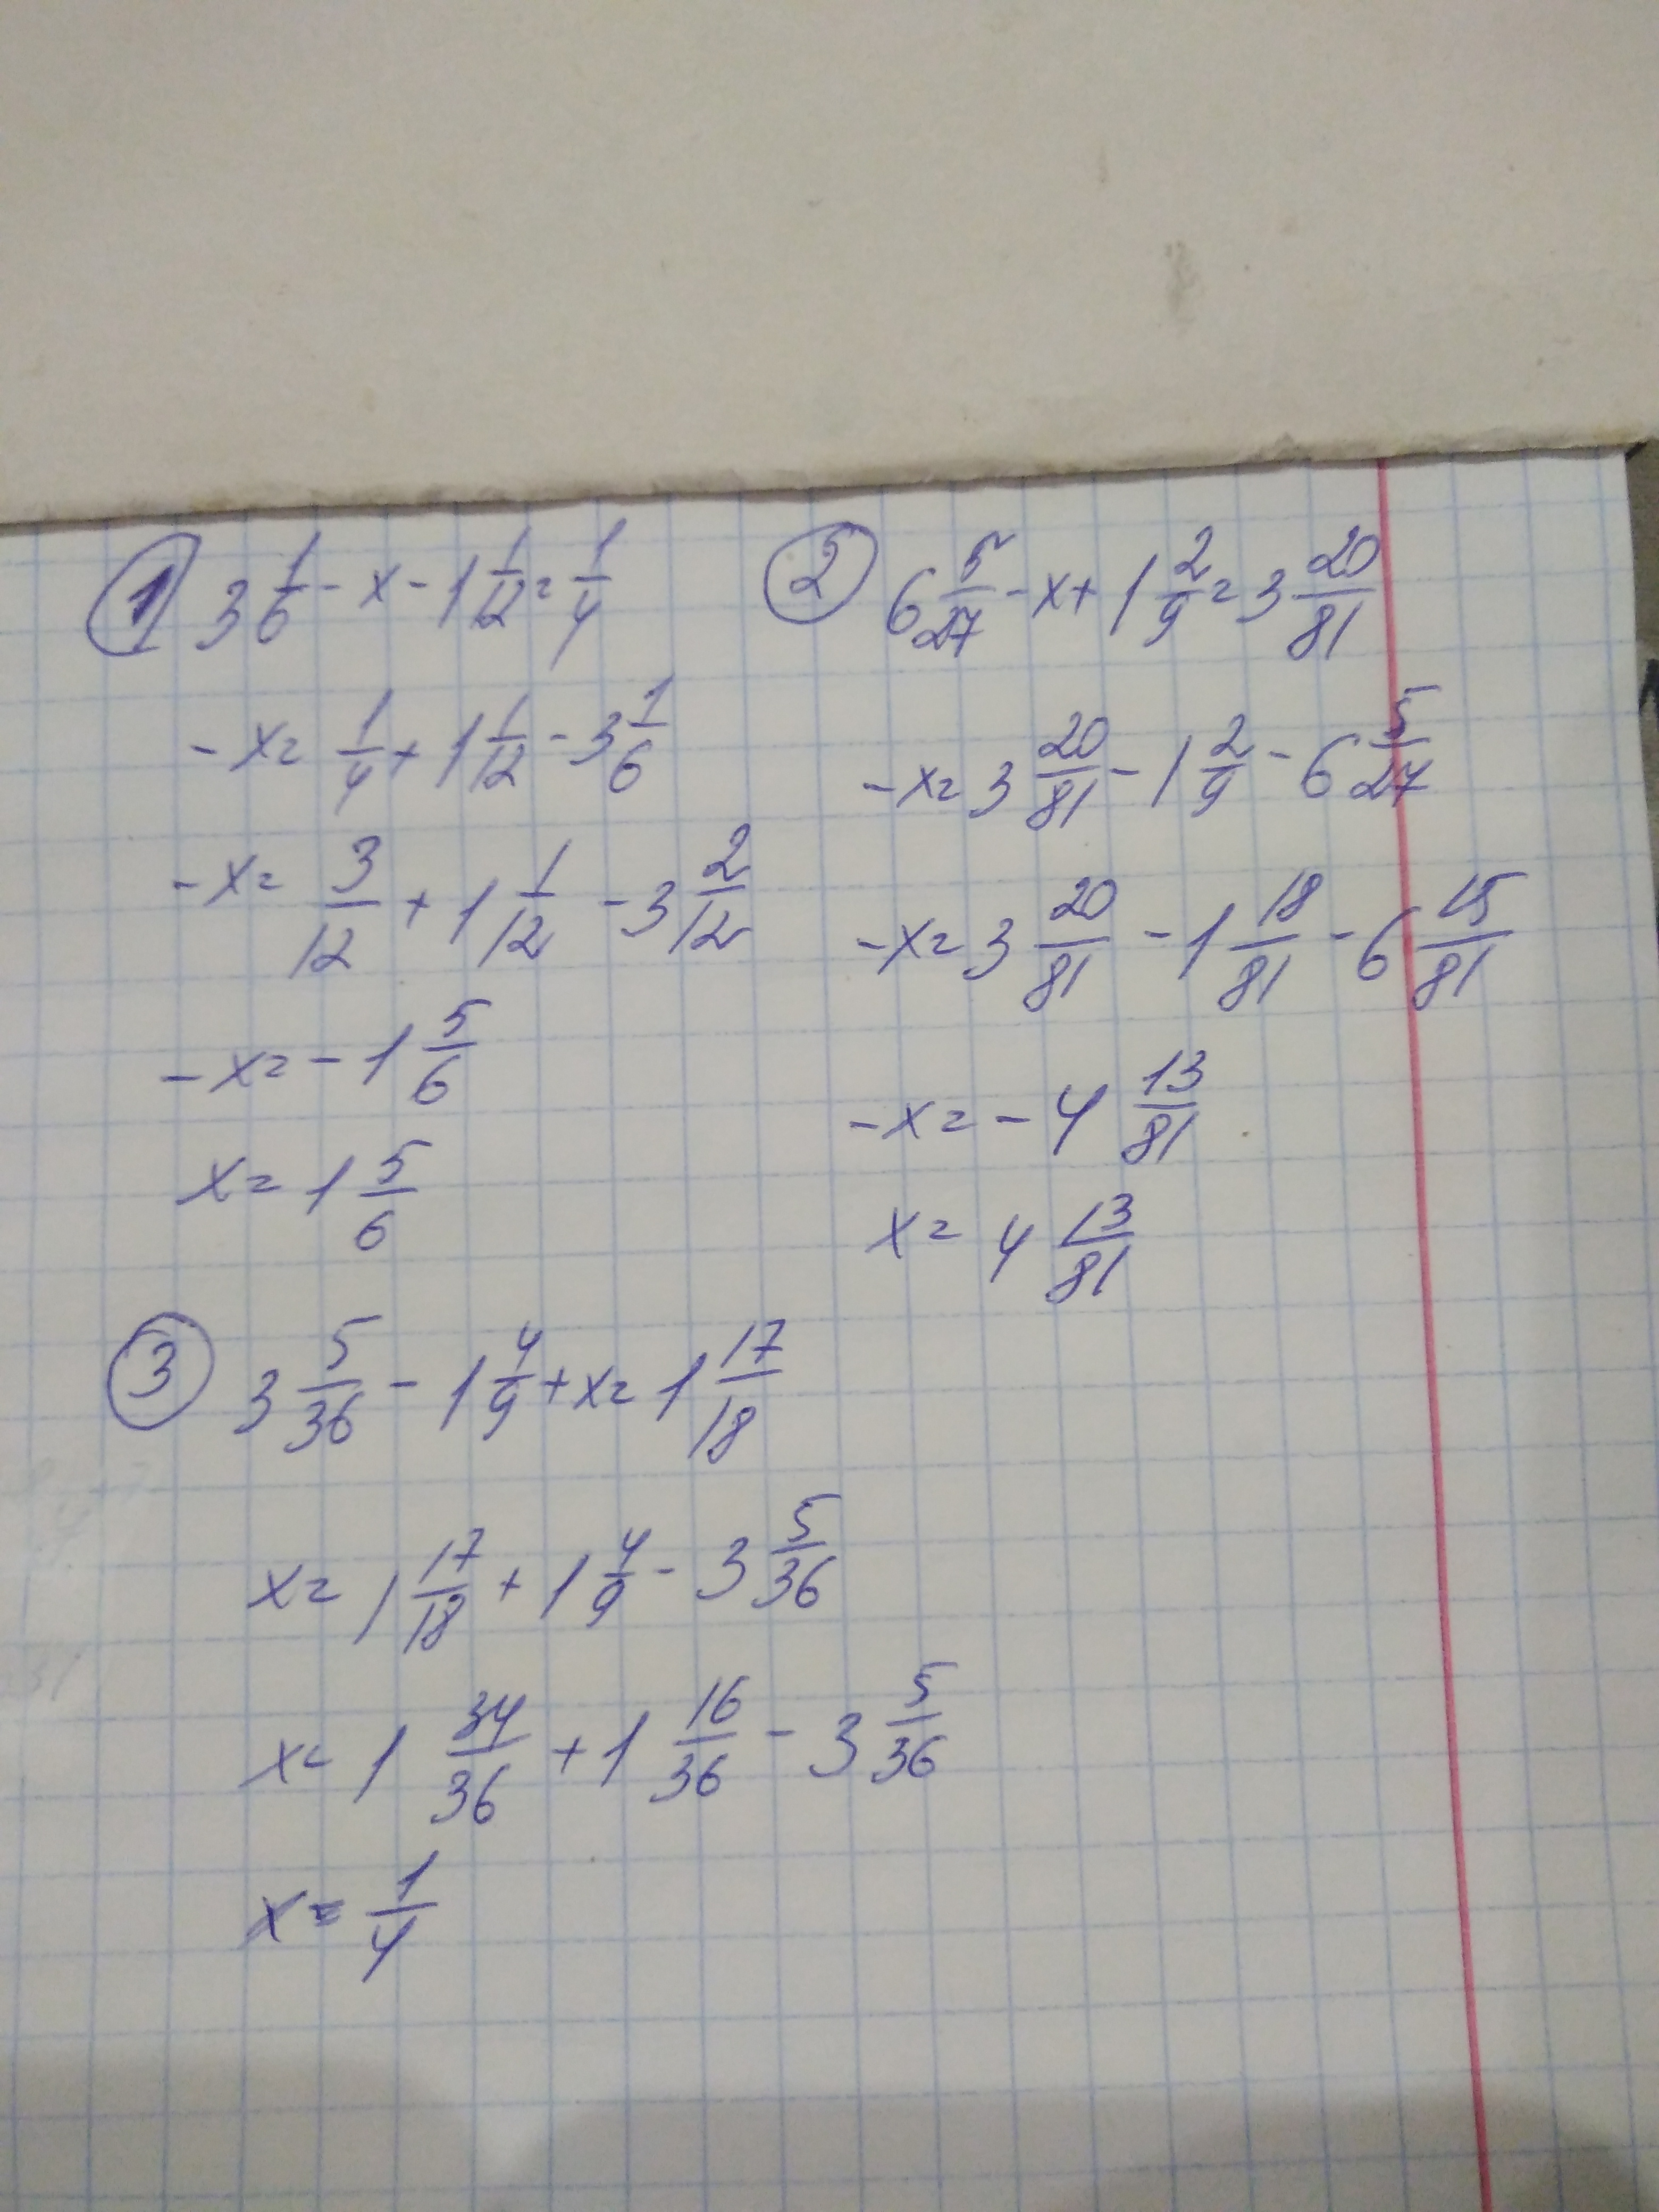 ① 3 1/6 - x - 1 1/12 = 1/4
- x = 1/4 + 1 1/12 - 3 1/6
- x = 3/12 + 1 1/12 - 3 2/12
- x = - 1 5/6
x = 1 5/6
② 6 5/27 - x + 1 2/9 = 3 20/81
- x = 3 20/81 - 1 2/9 - 6 5/27
- x = 3 20/81 - 1 18/81 - 6 15/81
- x = - 4 13/81
x = 4 13/81
③ 3 5/36 - 1 4/9 + x = 1 17/18
x = 1 17/18 + 1 4/9 - 3 5/36
x = 1 34/36 + 1 16/36 - 3 5/36
x = 1/4